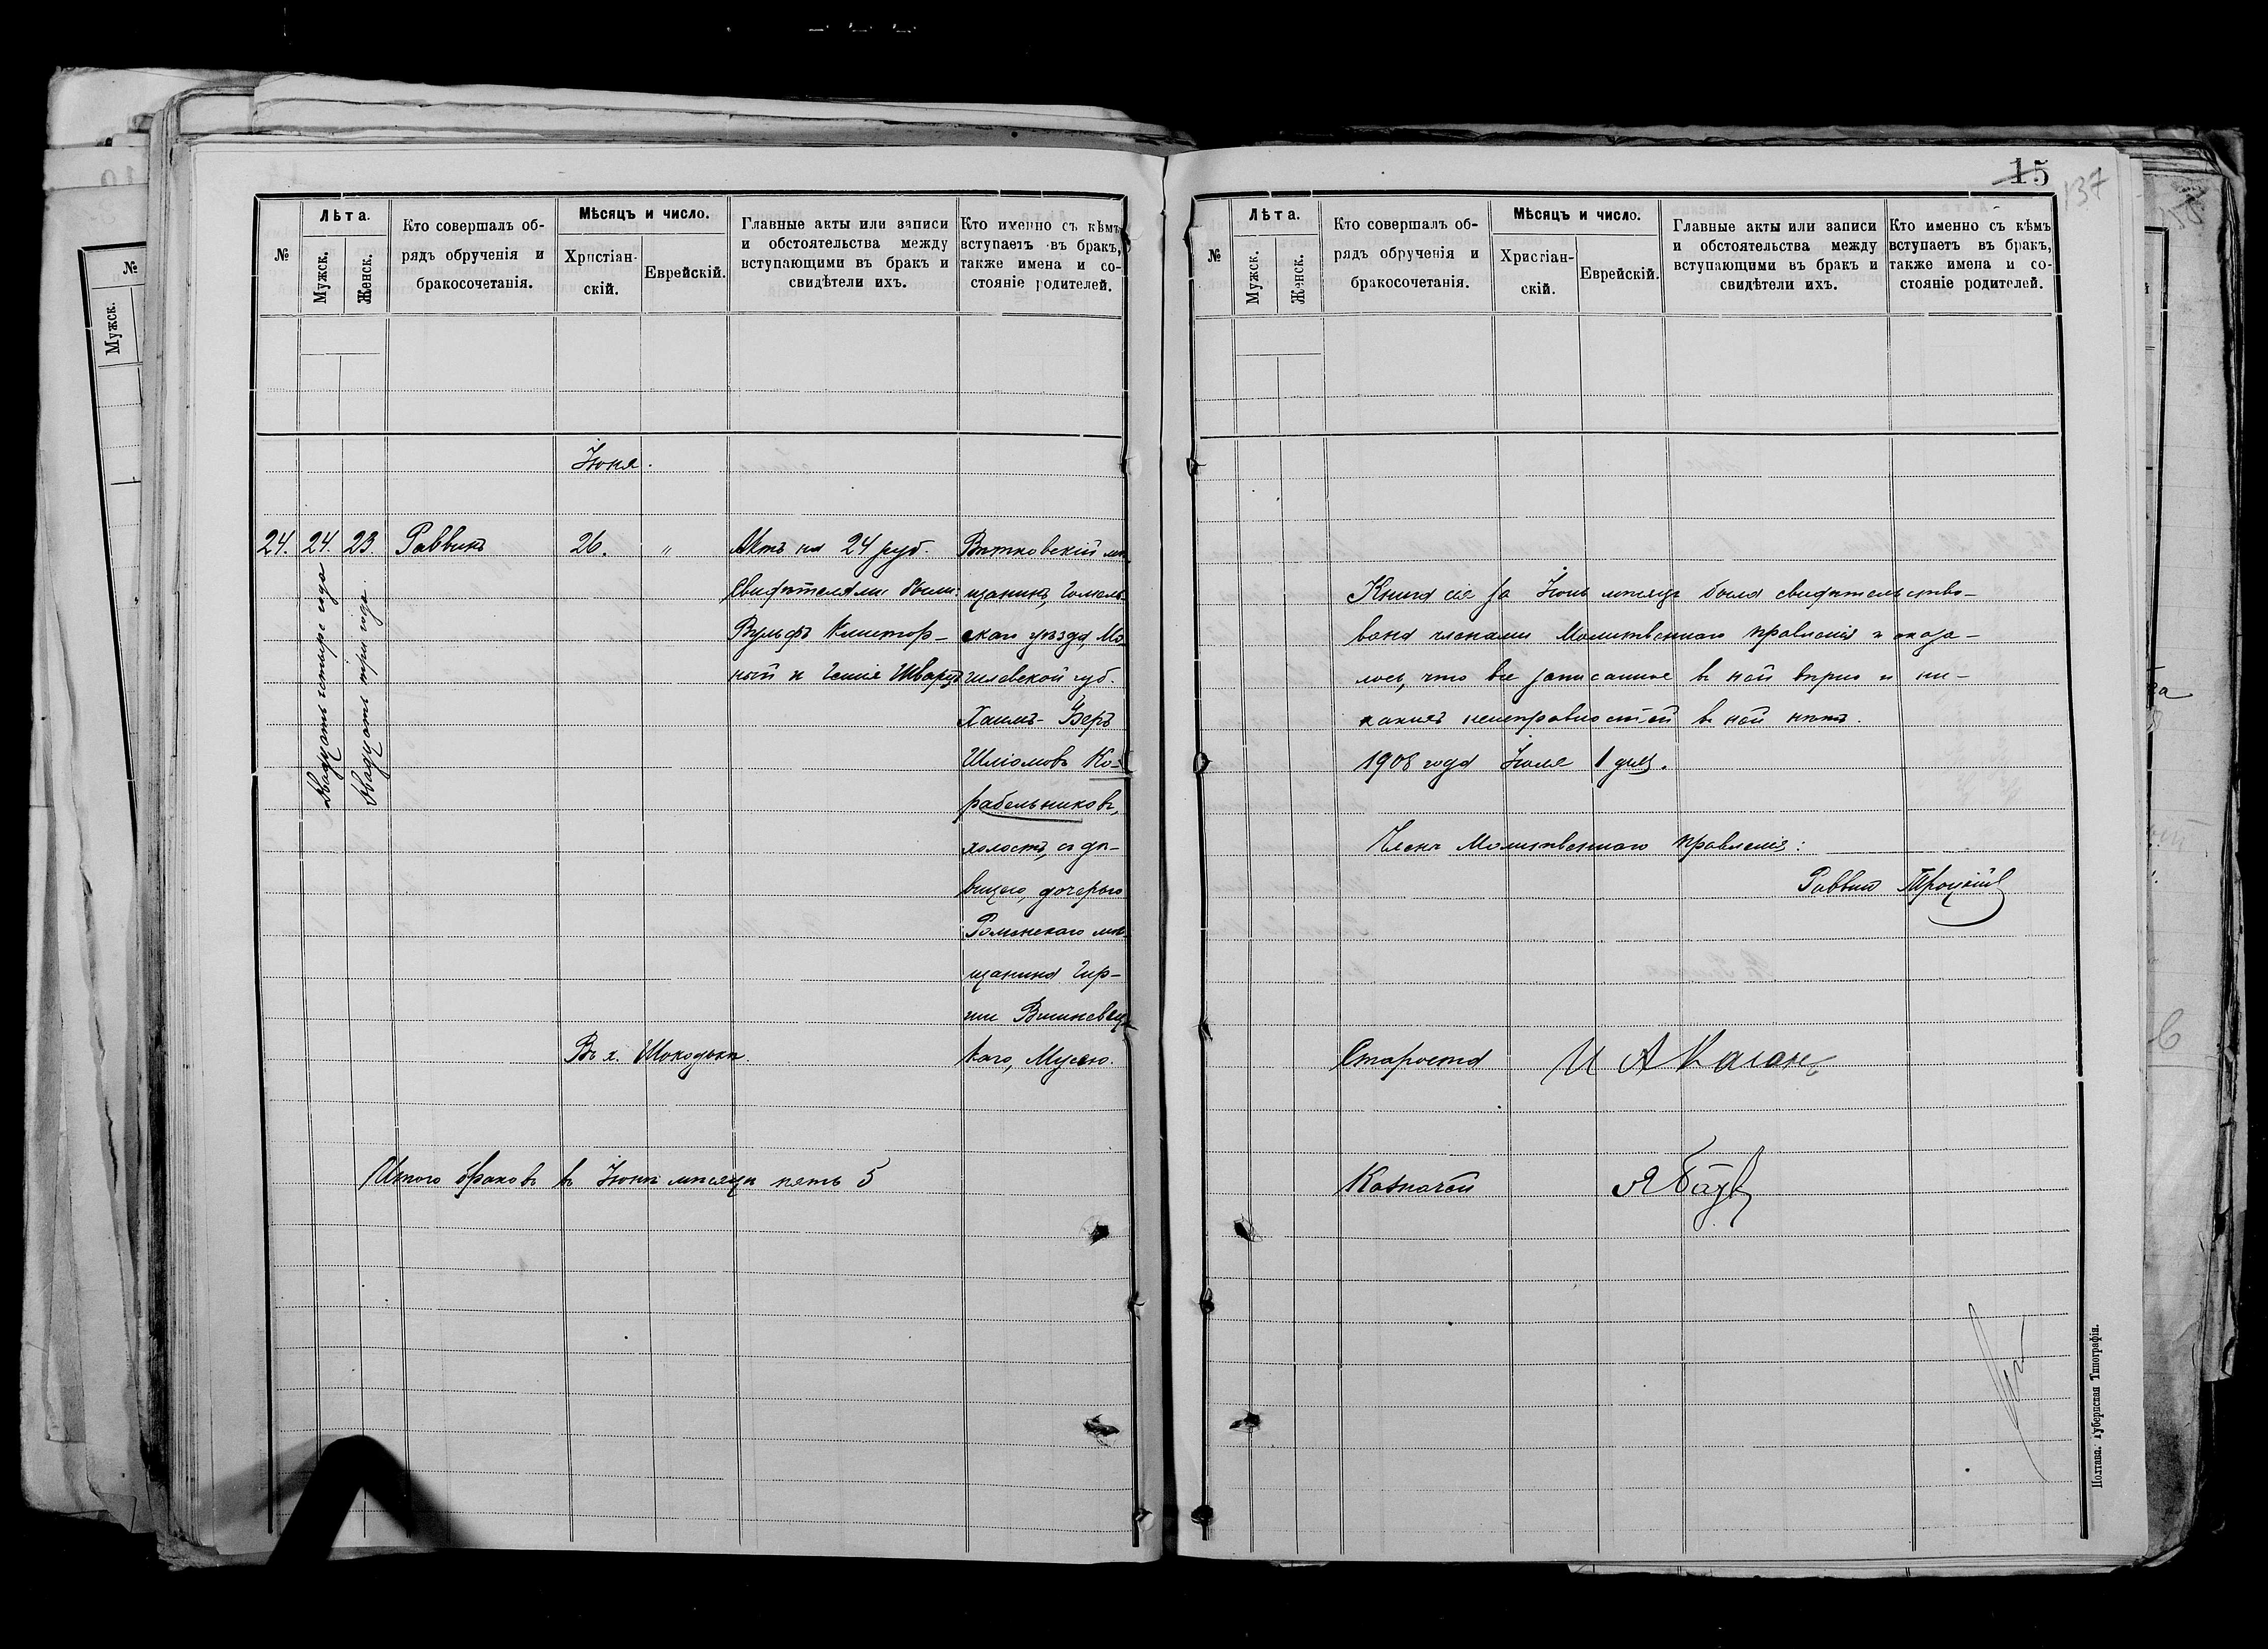 №
Лѣта.
Мужск.
Женск.
Кто совершалъ об-
рядъ обрученія и
бракосочетанія.
Мѣсяцъ и число.
Христіан-
скій.
Еврейскій.
Главные акты или записи
и обстоятельства между
вступающими въ бракъ и
свидѣтели ихъ.
Кто именно съ кѣмъ
вступаетъ въ бракъ,
также имена и со-
стояніе родителей.
Іюня.
24.
24.
Двадцать четыре года
23.
Двадцать три года.
Раввинъ
26.
"
Актъ на 24 руб.
Свидѣтелями были:
Вульфъ Клистор-
ный и Генія Шварцъ
Вѣтковскій мѣ
щанинъ, Гомель-
скаго уѣзда, Мо
гилевской губ.
Хаимъ-Беръ
Шліомовъ Ко-
рабельниковъ,
холостъ, съ дѣ-
вицею, дочерью
Роменскаго мѣ-
щанина Гир-
ши Вишневец-
каго, Мусею.
Въ х.
Итого браковъ въ Іюнѣ мѣсяцѣ пять 5
15
137
№
Лѣта.
Мужск.
Женск.
Кто совершалъ об-
рядъ обрученія и
бракосочетанія.
Мѣсяцъ и число.
Христіан-
скій.
Еврейскій.
Главные акты или записи
и обстоятельства между
вступающими въ бракъ и
свидѣтели ихъ.
Кто именно съ кѣмъ
вступаетъ въ бракъ,
также имена и со-
стояніе родителей.
Книга сія за Іюнь мѣсяцъ была свидѣтельство-
вана членами Молитвеннаго правленія и оказа-
лось, что все записанное въ ней вѣрно и ни-
какихъ неисправностей въ ней нѣтъ.
1908 года Іюля 1 дня.
Члены Молитвеннаго правленія:
Раввинъ Троцкій
Староста И А Каганъ
Казначей
Полтава. Губернская Типографія.
№
Мужск.